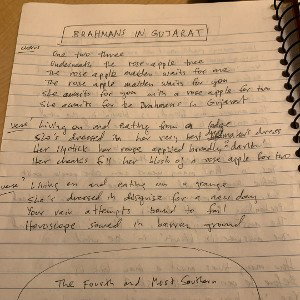 BRAHMANS IN GUJARAT
One two three
Underneath the rose apple tree
The rose apple maiden waits for me
The rose apple maiden waits for you
She awaits for you with a rose apple for two
She awaits for the Brahmans in Gujarat
verse Living on and eating from a
She's dressed in her very best dress
Her lipstick her rouge applied broadly
Her cheeks the blush of a rose apple for two
verse Living on and eating on a
She's dressed in disguise for a new day
Your vain attempts bound to fail
Horoscope sowed in barren ground
The Fourth and Most Southern